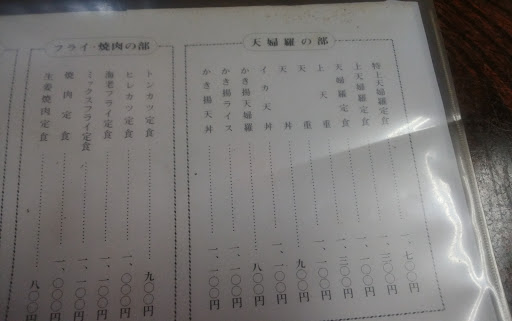 天婦羅の部
特上天婦羅定食 一、七〇〇円
上天婦羅定食 一、三〇〇円
天婦羅定食 一、一〇〇円
上天重 一、三〇〇円
天重 一、一〇〇円
天丼 九〇〇円
イカ天丼 一、一〇〇円
かき揚天婦羅 八〇〇円
かき揚ライス 一、一〇〇円
かき揚天丼 一、一〇〇円
フライ・焼肉の部
トンカツ定食 九〇〇円
ヒレカツ定食 一、〇〇〇円
海老フライ定食 一、一〇〇円
ミックスフライ定食 一、一〇〇円
焼肉定食 一、〇〇〇円
生姜焼肉定食 八〇〇円